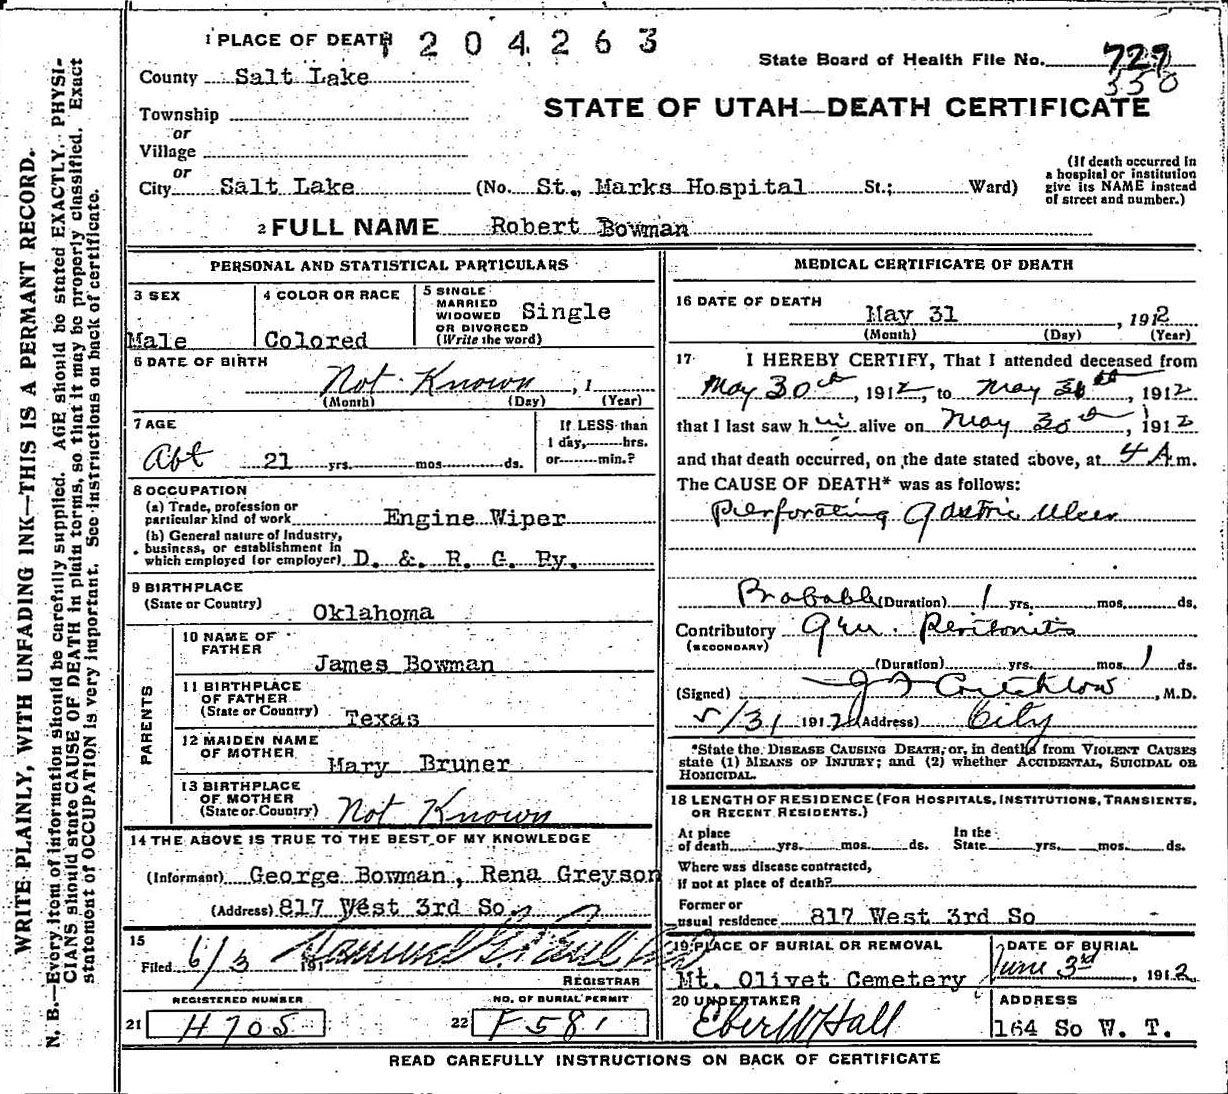 WRITE PLAINLY, WITH UNFADING INK—THIS IS A PERMANT RECORD.
N. B.—Every item of information should be carefully supplied. AGE should be stated EXACTLY. PHYSI-
CIANS should state CAUSE OF DEATH in plain terms, so that it may be properly classified. Exact
statement of OCCUPATION is very important. See instructions on back of certificate.
1 PLACE OF DEATH 1204263
State Board of Health File No. 729
350
County Salt Lake
STATE OF UTAH—DEATH CERTIFICATE
Township
or
Village
or
City Salt Lake (No. St., Marks Hospital St.; Ward)
(If death occurred in
a hospital or institution
give its NAME instead
of street and number.)
2 FULL NAME Robert Bowman
PERSONAL AND STATISTICAL PARTICULARS
3 SEX
Male
4 COLOR OR RACE
Colored
5 SINGLE
MARRIED
WIDOWED
OR DIVORCED
(Write the word)
Single
6 DATE OF BIRTH
Not Known , 1
(Month) (Day) (Year)
7 AGE
Abt 21 yrs. mos. ds.
If LESS than
1 day, hrs.
or min.?
8 OCCUPATION
(a) Trade, profession or
particular kind of work Engine Wiper
(b) General nature of Industry,
business, or establishment in
which employed (or employer) D. & R. G. Ry.
9 BIRTHPLACE
(State or Country) Oklahoma
PARENTS
10 NAME OF
FATHER
James Bowman
11 BIRTHPLACE
OF FATHER
(State or Country) Texas
12 MAIDEN NAME
OF MOTHER
Mary Bruner
13 BIRTHPLACE
OF MOTHER
(State or Country) Not Known
14 THE ABOVE IS TRUE TO THE BEST OF MY KNOWLEDGE
(Informant) George Bowman, Rena Greyson
(Address) 817 West 3rd So.
15
Filed 6/3 191
REGISTRAR
REGISTERED NUMBER
21 H705
NO. OF BURIAL PERMIT
22 F581
MEDICAL CERTIFICATE OF DEATH
16 DATE OF DEATH
May 31 , 1912
(Month) (Day) (Year)
17 I HEREBY CERTIFY, That I attended deceased from
May 30th, 1912, to May 30th, 1912
that I last saw him alive on May 30th, 1912
and that death occurred, on the date stated above, at 4 A.m.
The CAUSE OF DEATH* was as follows:
Perforating Gastric Ulcer
Probable (Duration) 1 yrs. mos. ds.
Contributory Gen. Peritonitis
(SECONDARY)
(Duration) yrs. mos. 1 ds.
(Signed) J F Critchlow , M.D.
5/31 1912 (Address) City
*State the DISEASE CAUSING DEATH, or, in deaths from VIOLENT CAUSES
state (1) MEANS OF INJURY; and (2) whether ACCIDENTAL, SUICIDAL OR
HOMICIDAL.
18 LENGTH OF RESIDENCE (FOR HOSPITALS, INSTITUTIONS, TRANSIENTS,
OR RECENT RESIDENTS.)
At place
of death yrs. mos. ds.
In the
State yrs. mos. ds.
Where was disease contracted,
if not at place of death?
Former or
usual residence 817 West 3rd So
19 PLACE OF BURIAL OR REMOVAL
Mt. Olivet Cemetery
DATE OF BURIAL
June 3rd , 1912
20 UNDERTAKER
Eber W Hall
ADDRESS
164 So W. T.
READ CAREFULLY INSTRUCTIONS ON BACK OF CERTIFICATE